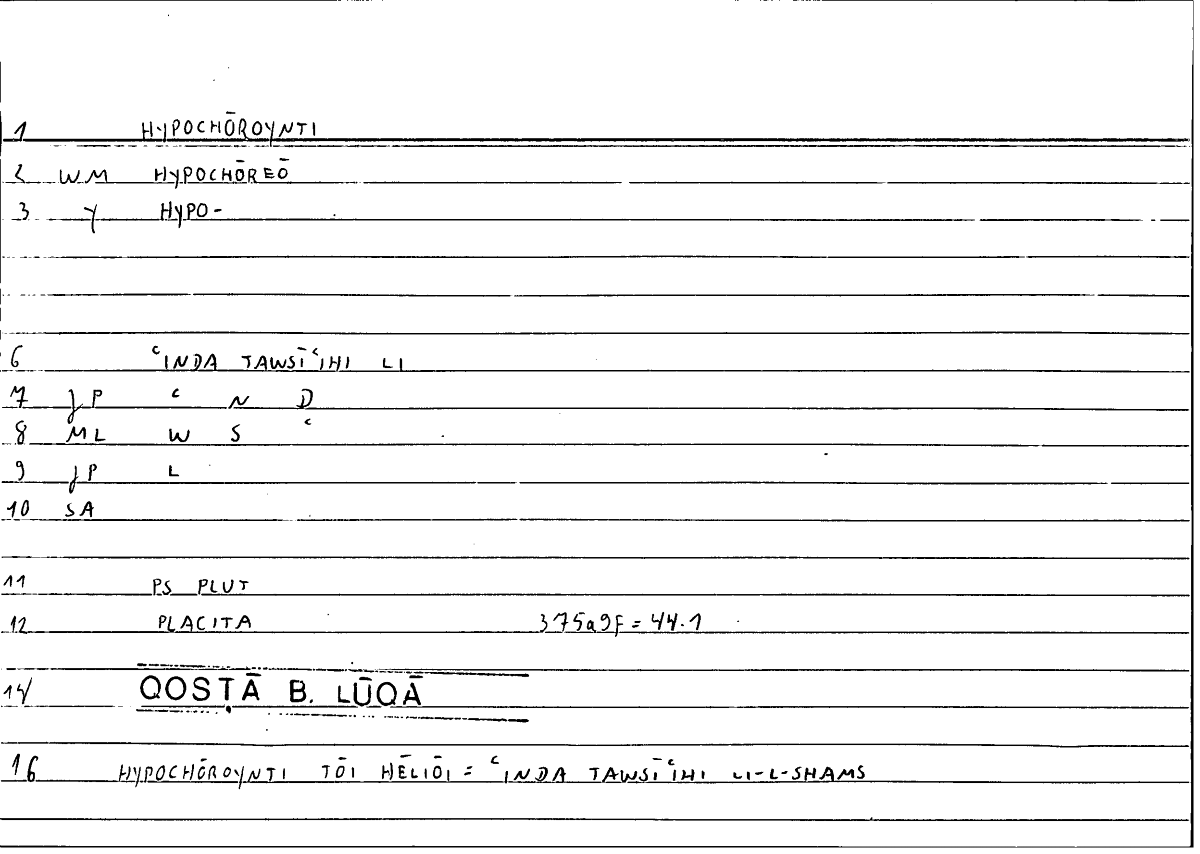 1 HYPOCHŌROYNTI
2 WM HYPOCHŌREŌ
3 Y HYPO-
6 ʿINDA TAWSĪʿIHI LI
7 JP ʿ N D
8 ML W S ʿ
9 JP L
10 SA
11 PS PLUT
12 PLACITA 375a9f = 44.1
14/ QOSṬĀ B. LŪQĀ
16 HYPOCHŌROYNTI TŌI HĒLIŌI = ʿINDA TAWSĪʿIHI LI-L-SHAMS